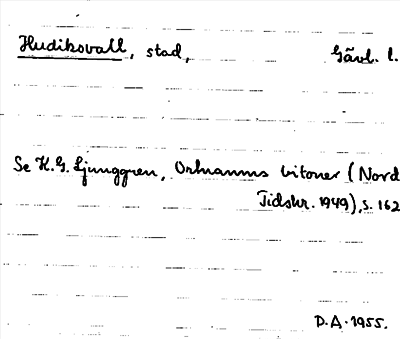 Hudiksvall, stad, Gävl. l.
Se K.G. Ljunggren, Ortnamns bitoner (Nord
Tidskr. 1949), s. 162
D.A. 1955.